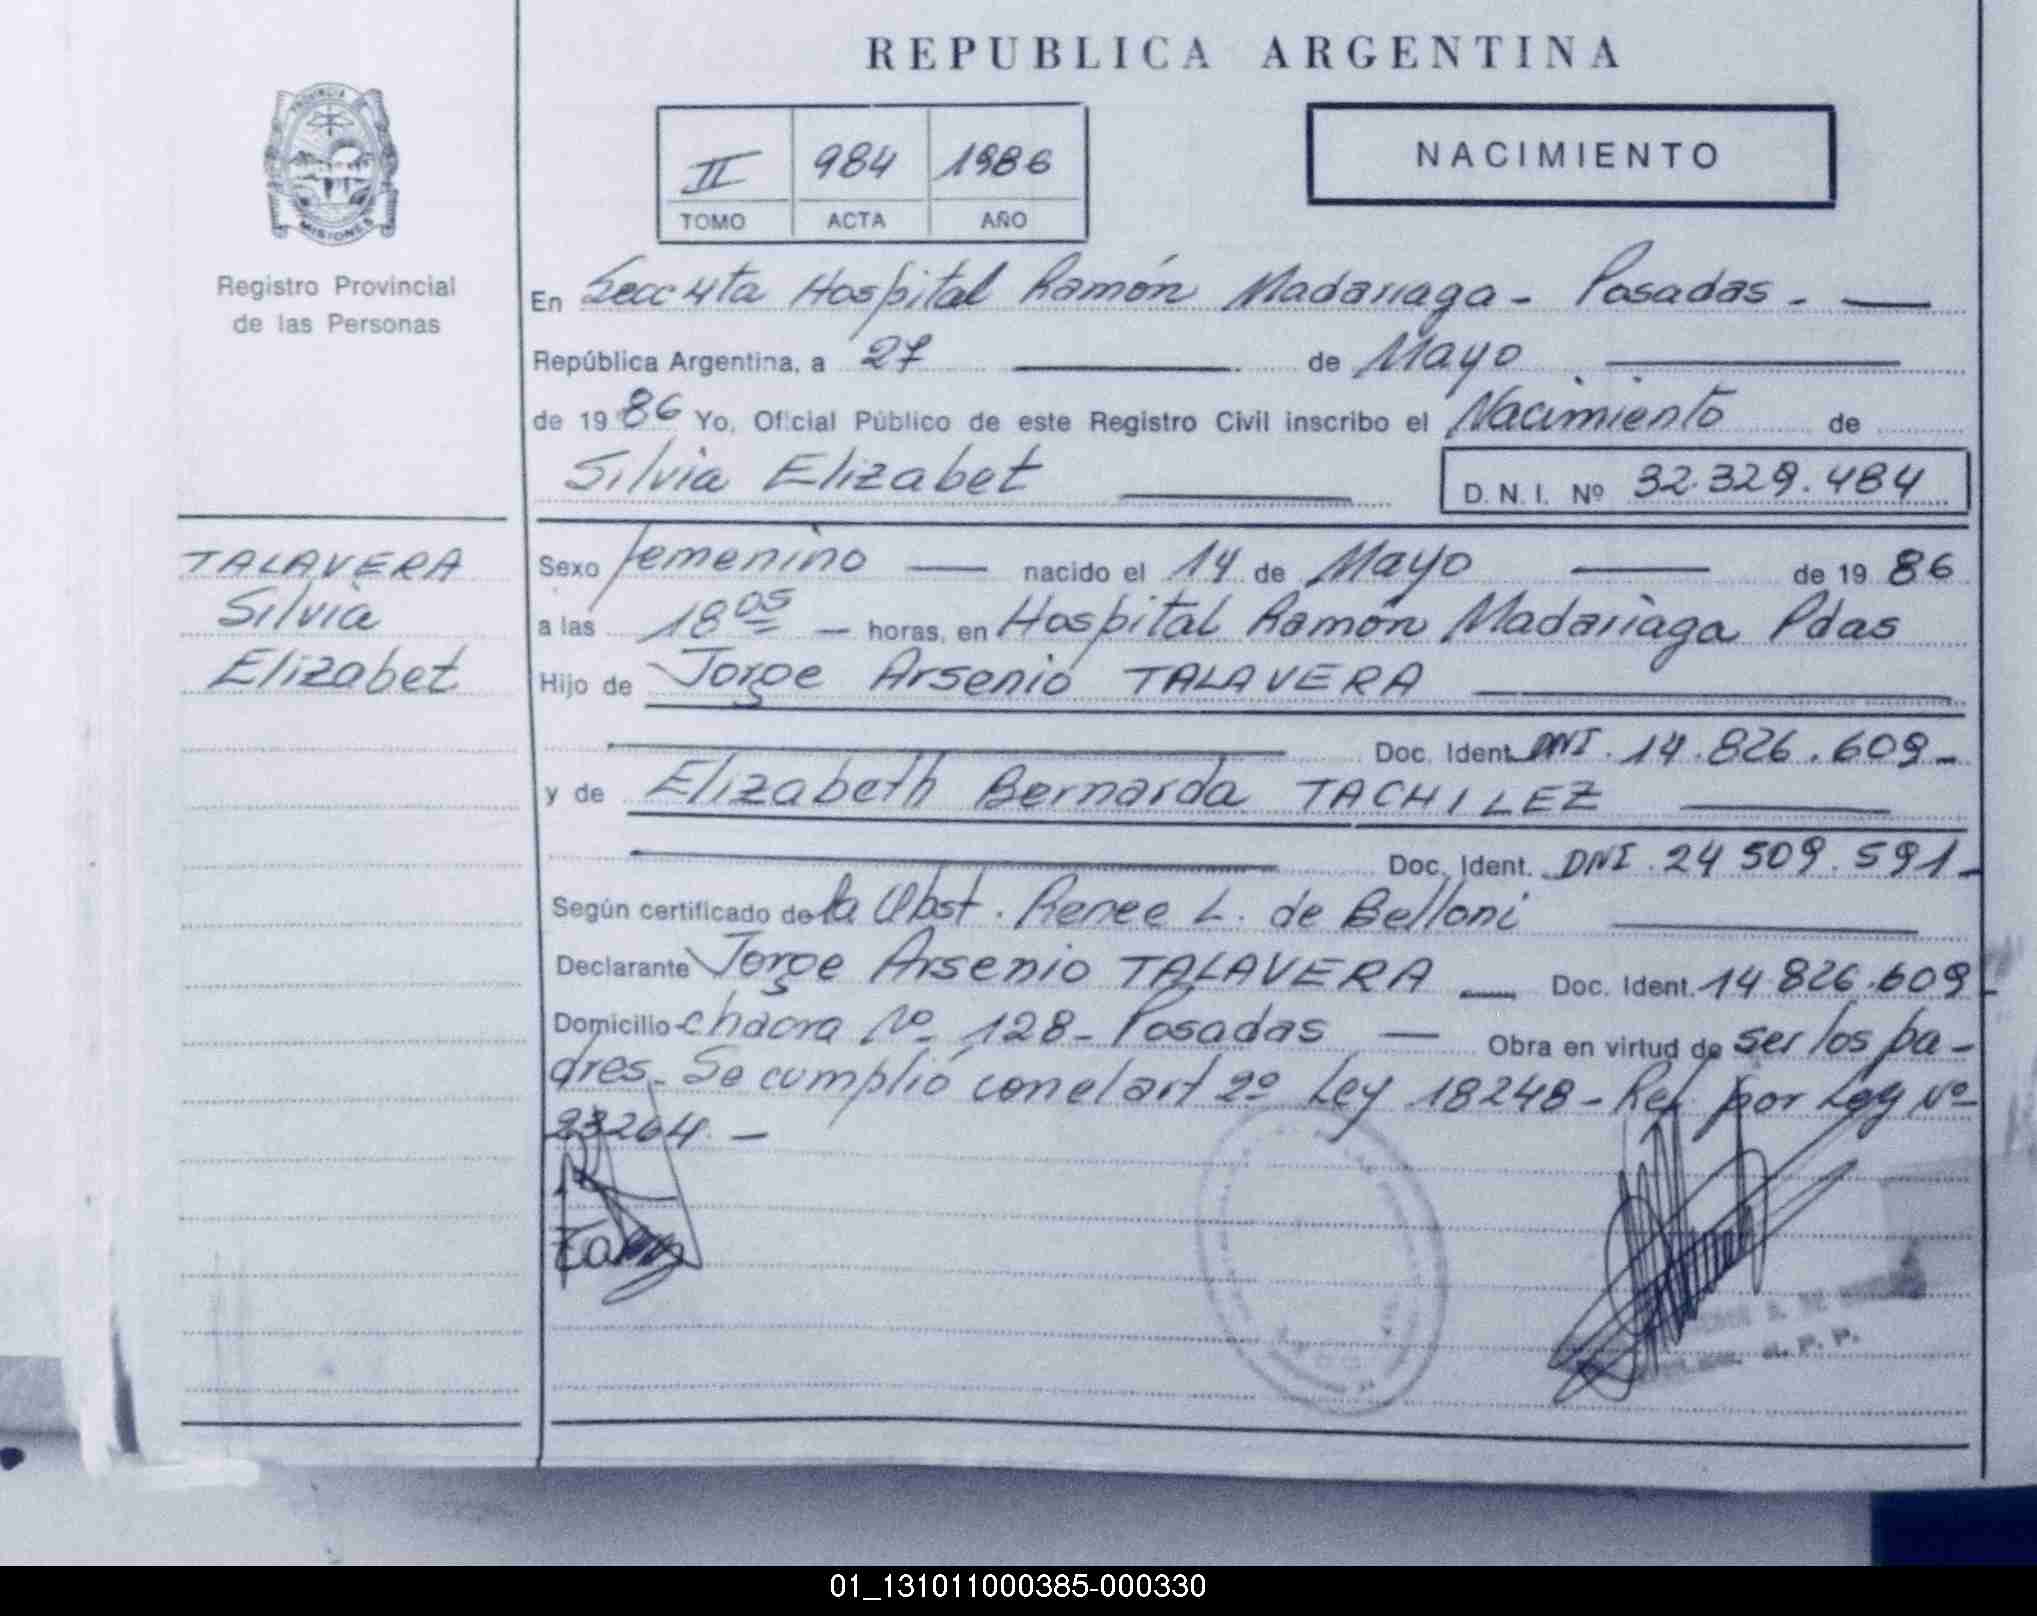 REPUBLICA ARGENTINA
PROVINCIA
MISIONES
Registro Provincial
de las Personas
II 984 1986
TOMO ACTA AÑO
NACIMIENTO
En Secc 4ta Hospital Ramón Madariaga - Posadas -
República Argentina, a 27 de Mayo
de 1986 Yo, Oficial Público de este Registro Civil inscribo el Nacimiento de
Silvia Elizabet
D. N. I. Nº 32.329.484
TALAVERA
Silvia
Elizabet
Sexo femenino nacido el 14 de Mayo de 1986
a las 18 05 horas, en Hospital Ramón Madariaga Pdas
Hijo de Jorge Arsenio TALAVERA
Doc. Ident. DNI. 14.826.609-
y de Elizabeth Bernarda TACHILEZ
Doc. Ident. DNI. 24 509.591-
Según certificado de la Obst. Renee L. de Belloni
Declarante Jorge Arsenio TALAVERA Doc. Ident. 14 826.609-
Domicilio chacra Nº 128- Posadas Obra en virtud de ser los pa-
dres. Se cumplió con el art 2º Ley 18248- Ref. por Ley Nº
23264. -
01_131011000385-000330